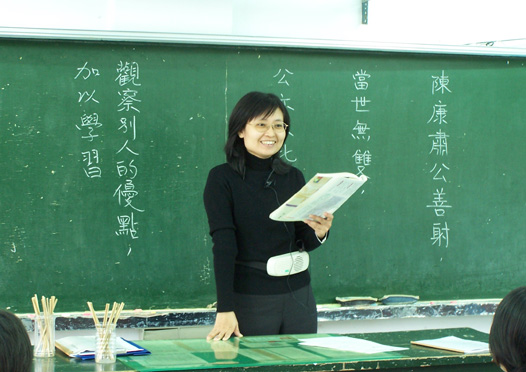 陳康肅公善射，
當世無雙，
公
觀察別人的優點，
加以學習